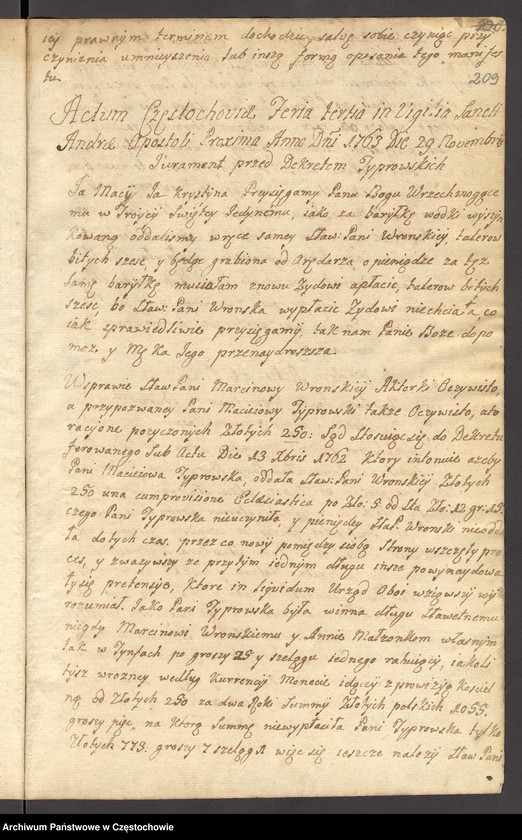 209
iey prawnym terminem dochodzić, salvę sobie czyniąc przy
czynienia umnieyszenia, lub inszą formą opisania tego manifes
tu.
Actum Częstochoviæ Feria tertia in Vigilia Sancti
Andreæ Apostoli Proxima Anno Dñi 1763 Die 29 Novembris
Jurament przed Dekretem Typrowskich
Ja Maciy Ja Krystina Przysięgamy Panu Bogu Wrzechmogące
mu w Troycy Świętey Jedynemu, iako za baryłkę wodki
oddalismy wręce samey Sław: Pani Wronskiey, talerow
bitych szesc y będąc grabiona od Arędarza o pieniądze za tęz
samę baryłkę musiałam znowu Zydowi apłacic, talerow bitych
szesc, bo Sław: Pani Wronska wypłacic Zydowi niechciała, co
iak sprawiedliwie przysięgamy, tak nam Panie Boze dopo
moz y Męka Jego przenaydroszsza.
Wsprawie Sław Pani Marcinowy Wronskiey Aktorki Oczywisto,
a przypozwaney Pani Macieiowy Typrowski takze Oczywisto, ato
racyone pozyczonych Złotych 250: Sąd Stosuiąc się do Dekretu
ferowanego Sub Actu Die 13 Xbris 1762 Ktory intonuie azeby
Pani Macieiowa Typrowska, oddała Sław: Pani Wronskiey Złotych
250 una cum provisione Ecclesiastica po Zło: 5 od Sta Zło: 12 gr: 15
czego Pani Typrowska nieuczyniła, y pieniędzy Sław P. Wronski nieodda
ła dotych czas. przez co nowy pomiędzy sobą Strony wszczęły pro
ces, y zwazywszy ze przytym iednym długu insze powynaydowa
ły się pretensye, Ktore in liquidum Urząd Oboi wziąwszy wy
rozumiał. Jako Pani Typrowska była winna długu Sławetnemu
niegdy Marcinowi Wronskiemu y Annie Małzonkom własnym
tak w Tynfach po groszy 25 y szelągu iednego rahuiący, iakoli
tysz wrozney według Kurrencyi Monecie idący z prowizyą Kościel
ną od Złotych 250 za dwa Roki Summy Złotych polskich 1055.
groszy pięc, na Ktorą Summę niewypłaciła Pani Typrowska tylko
Złotych 773. groszy 7 szeląg 1 więc się ieszcze nalezy Sław Pani
Archiwum Państwowe w Częstochowie